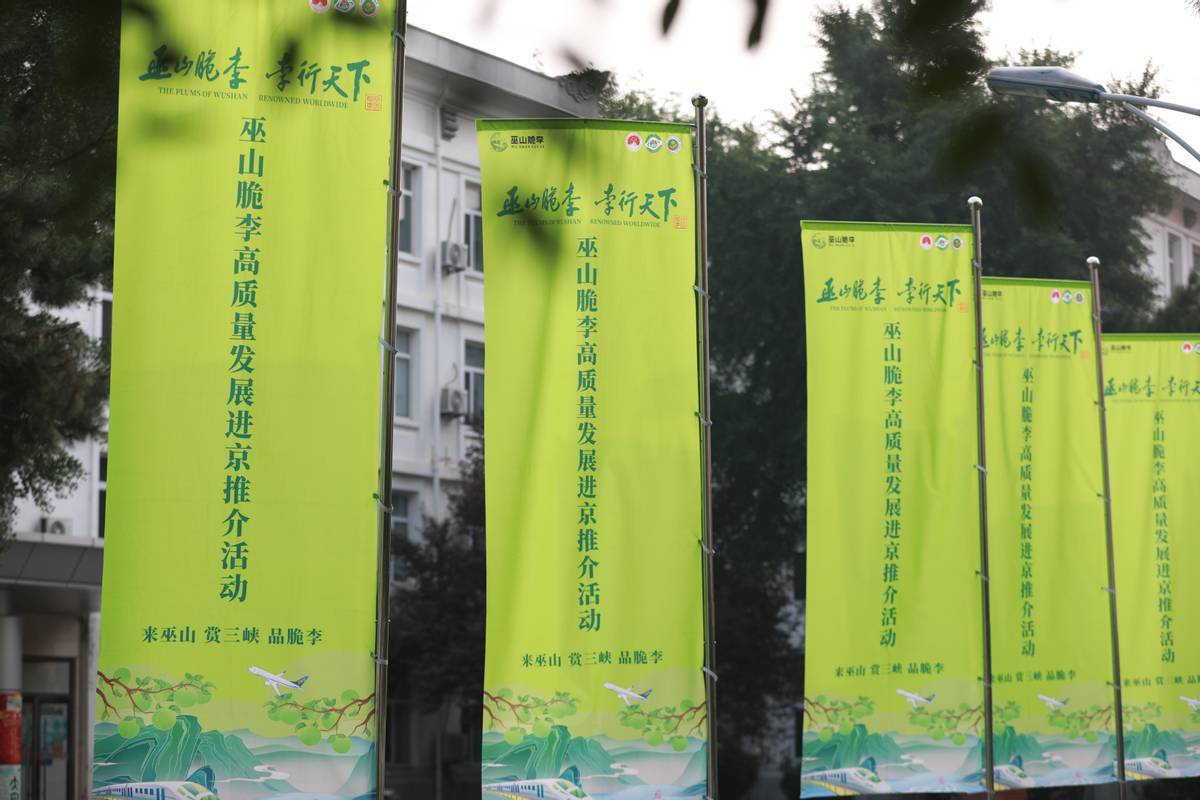 巫山脆李 李行天下
THE PLUMS OF WUSHAN RENOWNED WORLDWIDE
巫山脆李高质量发展进京推介活动
来巫山 赏三峡 品脆李
巫山脆李
巫山脆李 李行天下
THE PLUMS OF WUSHAN RENOWNED WORLDWIDE
巫山脆李高质量发展进京推介活动
来巫山 赏三峡 品脆李
巫山脆李
巫山脆李 李行天下
THE PLUMS OF WUSHAN RENOWNED WORLDWIDE
巫山脆李高质量发展进京推介活动
来巫山 赏三峡 品脆李
巫山脆李 李行天下
巫山脆李高质量发展进京推介活动
来巫山 赏三峡 品脆李
巫山脆李 李行天
巫山脆李高质量发展进京推介活动
来巫山 赏三峡 品脆